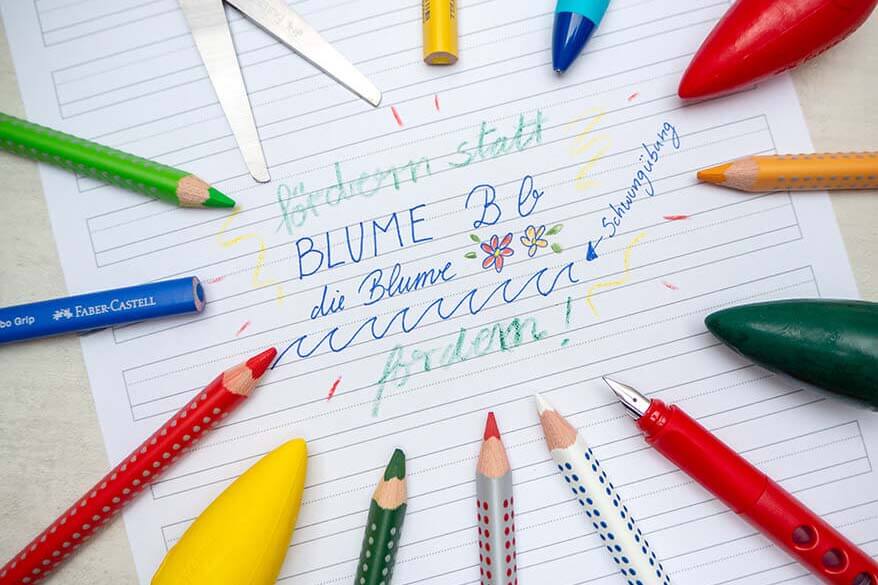 fördern statt
BLUME B b
die Blume
Schwungübung
fordern!
FABER-CASTELL